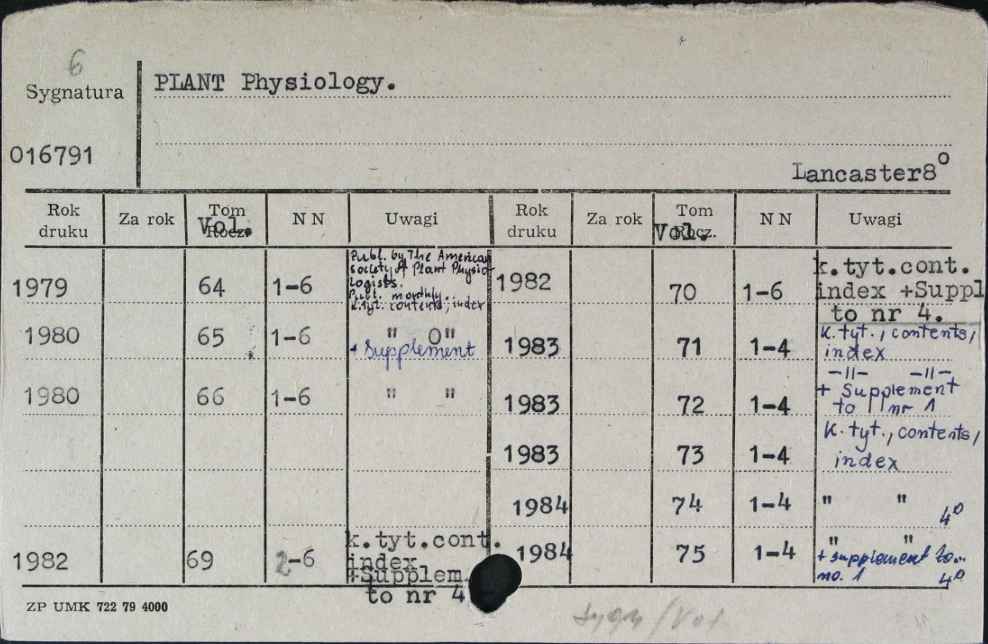 6
Sygnatura
PLANT Physiology.
016791
Lancaster8⁰
Rok druku Za rok Tom Vol. N N Uwagi Rok druku Za rok Tom Vol. N N Uwagi
1979 64 1-6
Publ. by The American
society of Plant Physio-
logists.
Publ. monthly.
k.tyt. contents, index
1980 65 1-6 " 0"
+ Supplement
1980 66 1-6 " "
1982 69 2-6
k.tyt.cont.
index
+Supplem.
to nr 4
1982 70 1-6
k.tyt.cont.
index +Suppl
to nr 4.
1983 71 1-4
k.tyt., contents,
index
1983 72 1-4
-11- -11-
+ Supplement
to nr 1
1983 73 1-4
k.tyt., contents,
index
1984 74 1-4 " " 4⁰
1984 75 1-4 " "
+ supplement to..
no. 1 4⁰
ZP UMK 722 79 4000